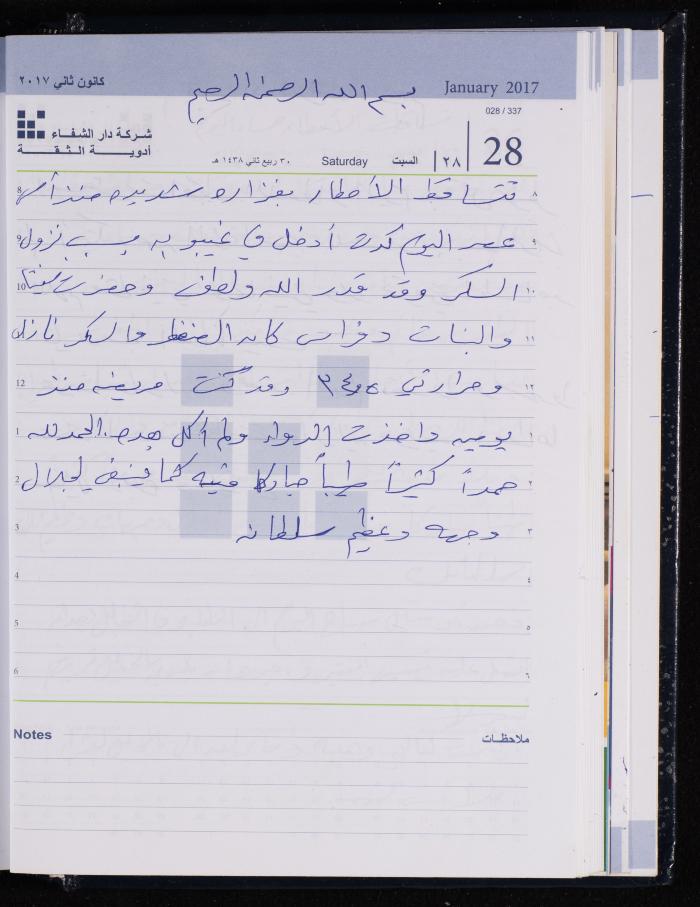 كانون ثاني ٢٠١٧
بسم الله الرحمن الرحيم
January 2017
028 / 337
شركة دار الشفاء
أدوية الثقة
٣٠ ربيع ثاني ١٤٣٨ هـ Saturday السبت ٢٨ 28
8 تتساقط الأمطار بغزاره شديده منذ أمس ٨
عصر اليوم كدت أدخل في غيبوبه بسبب نزول ٩
10 السكر وقد قدر الله ولطف وحضرت ١٠
والبنات وفراس كان الضغط والسكر نازل ١١
12 وحرارتي وقد كنت مريضه منذ ١٢
1 يوميه واخذت الدواء ولم آكل بعده. الحمدلله ١
2 حمداً كثيراً طيباً مباركا فيه كما ينبغي لجلال ٢
3 وجهه وعظيم سلطانه ٣
4 ٤
5 ٥
6 ٦
Notes ملاحظات